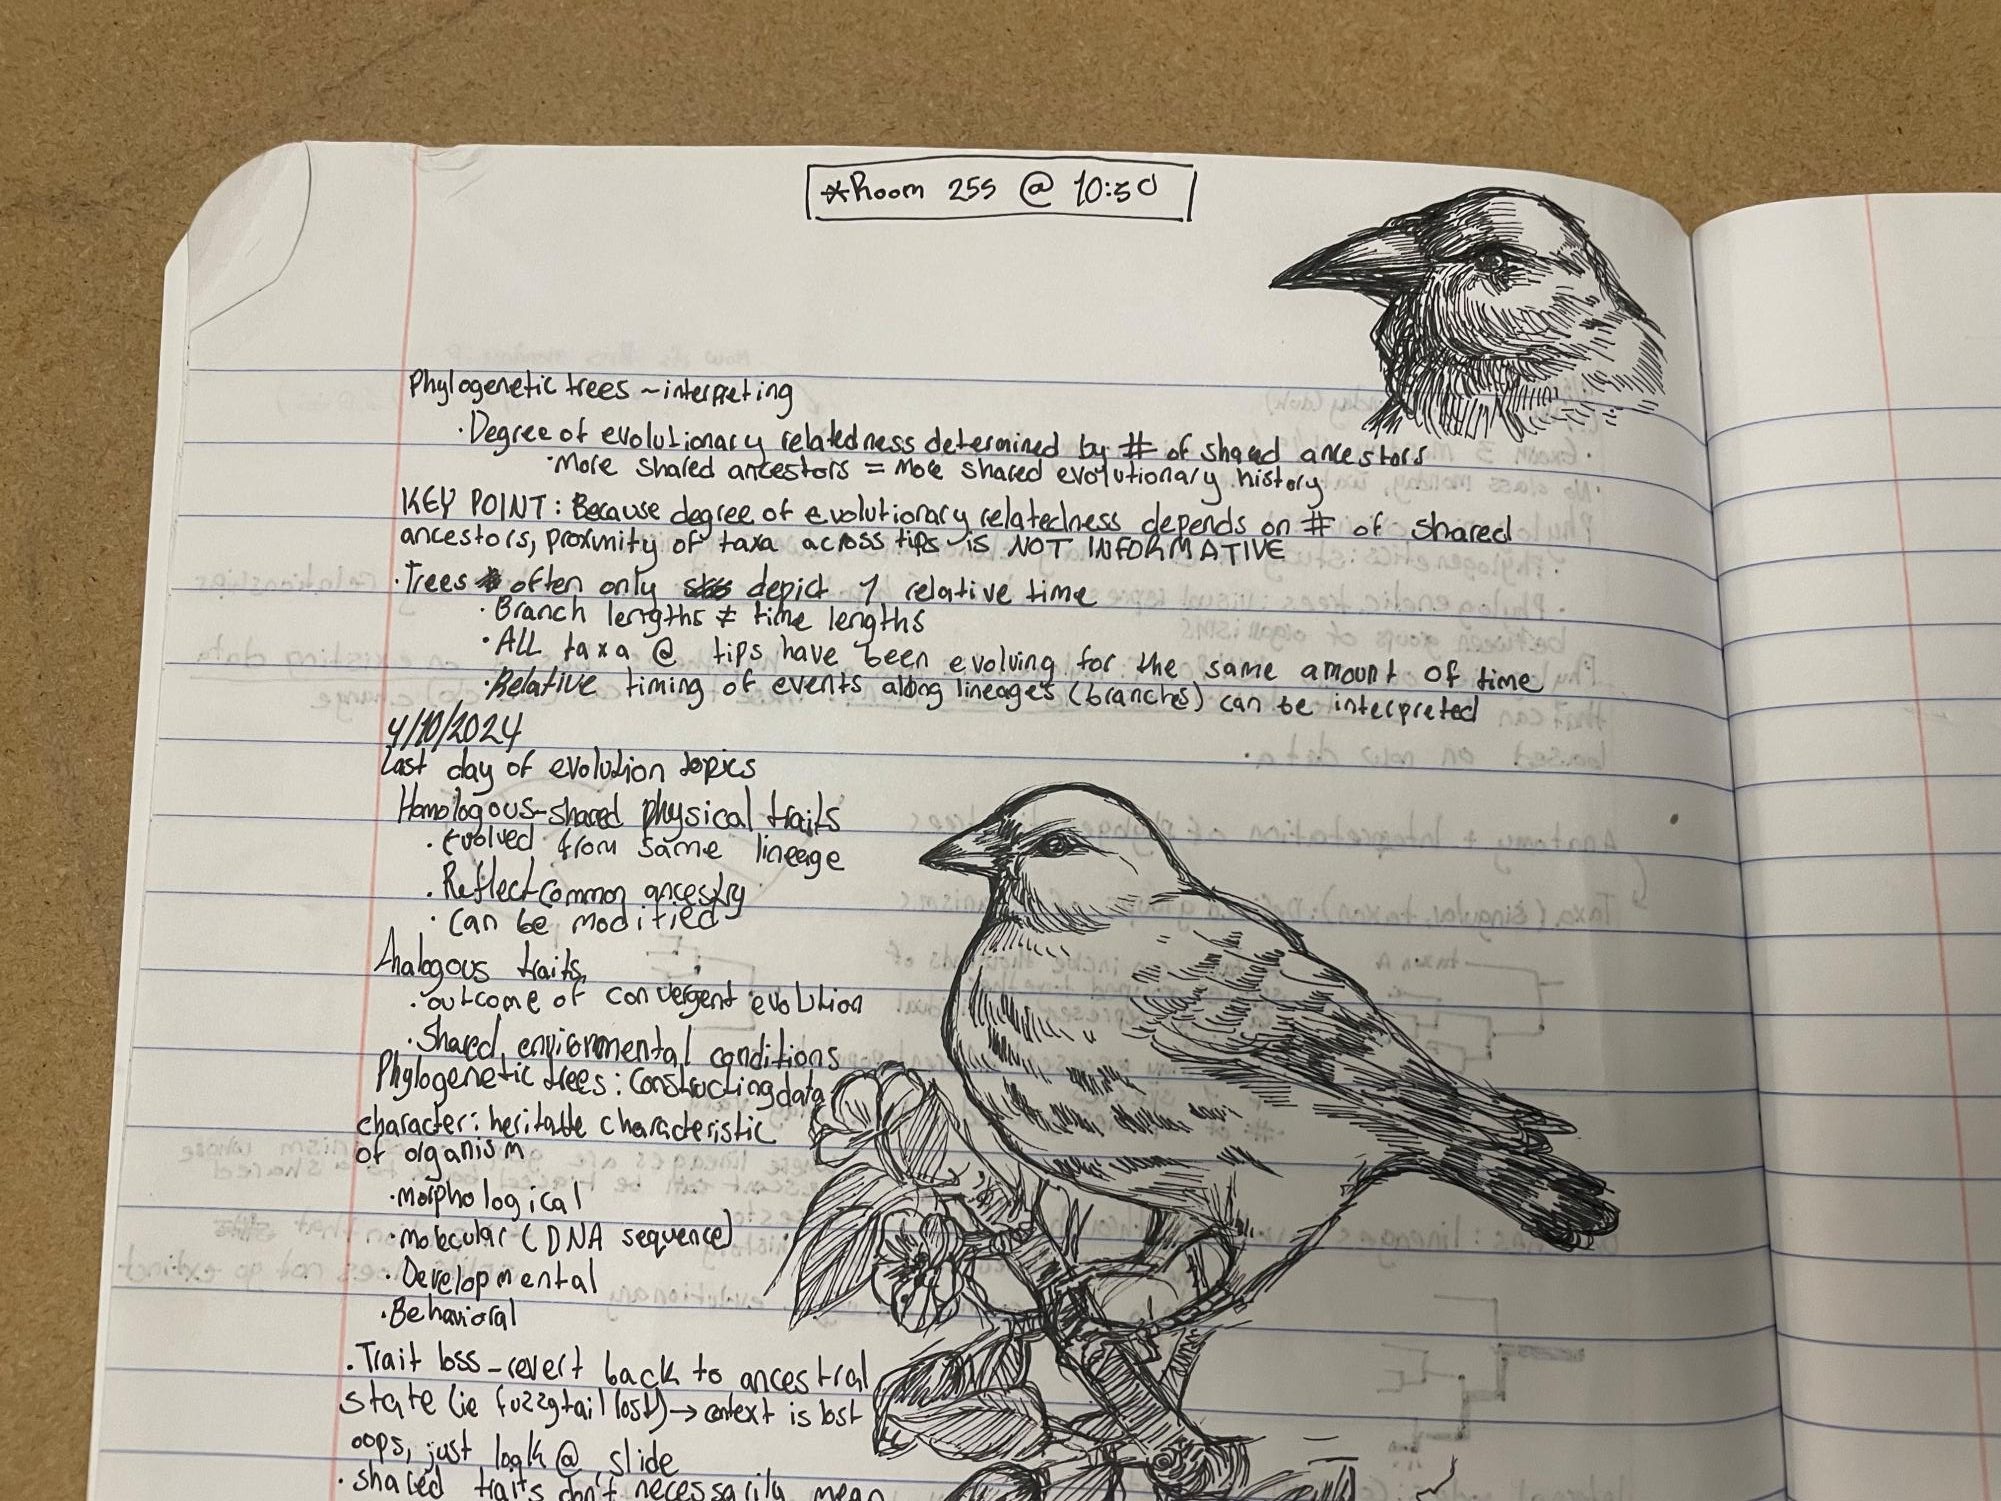 *Room 255 @ 10:50
Phylogenetic trees ~ interpreting
· Degree of evolutionary relatedness determined by # of shared ancestors
· More shared ancestors = more shared evolutionary history
KEY POINT: Because degree of evolutionary relatedness depends on # of shared
ancestors, proximity of taxa across tips is NOT INFORMATIVE
· Trees often only depict relative time
· Branch lengths ≠ time lengths
· ALL taxa @ tips have been evolving for the same amount of time
· Relative timing of events along lineages (branches) can be interpreted
4/10/2024
Last day of evolution topics
Homologous - shared physical traits
· Evolved from same lineage
· Reflect common ancestry
· can be modified
Analogous traits
· outcome of convergent evolution
· Shared environmental conditions
Phylogenetic trees: constructing data
character: heritable characteristic
of organism
· morphological
· molecular (DNA sequence)
· Developmental
· Behavioral
· Trait loss - revert back to ancestral
state (ie fuzzy tail lost) → context is lost
oops, just look @ slide
· shared traits don't necessarily mean